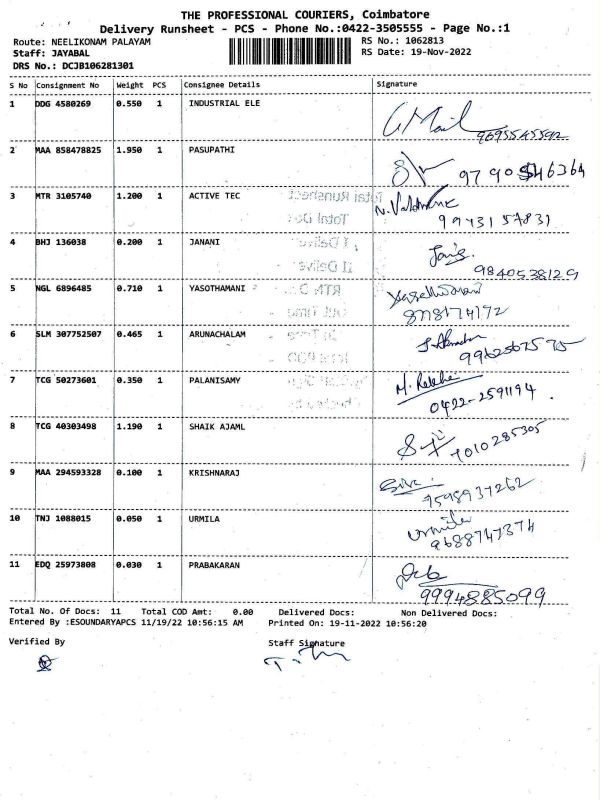 THE PROFESSIONAL COURIERS, Coimbatore
Delivery Runsheet - PCS - Phone No.:0422-3505555 - Page No.:1
Route: NEELIKONAM PALAYAM RS No.: 1062813
Staff: JAYABAL RS Date: 19-Nov-2022
DRS No.: DCJB106281301
S No Consignment No Weight PCS Consignee Details Signature
1 DDG 4580269 0.550 1 INDUSTRIAL ELE
9695545592
2 MAA 858478825 1.950 1 PASUPATHI
3 MTR 3105740 1.200 1 ACTIVE TEC
9943157831
4 BHJ 136038 0.200 1 JANANI
9840538129
5 NGL 6896485 0.710 1 YASOTHAMANI
8778174172
6 SLM 307752507 0.465 1 ARUNACHALAM
7 TCG 50273601 0.350 1 PALANISAMY
0422-2591194
8 TCG 40303498 1.190 1 SHAIK AJAML
7010285305
9 MAA 294593328 0.100 1 KRISHNARAJ
9598937262
10 TNJ 1088015 0.050 1 URMILA
urmila
9688747374
11 EDQ 25973808 0.030 1 PRABAKARAN
9994885099
Total No. Of Docs: 11 Total COD Amt: 0.00 Delivered Docs: Non Delivered Docs:
Entered By :ESOUNDARYAPCS 11/19/22 10:56:15 AM Printed On: 19-11-2022 10:56:20
Verified By Staff Signature